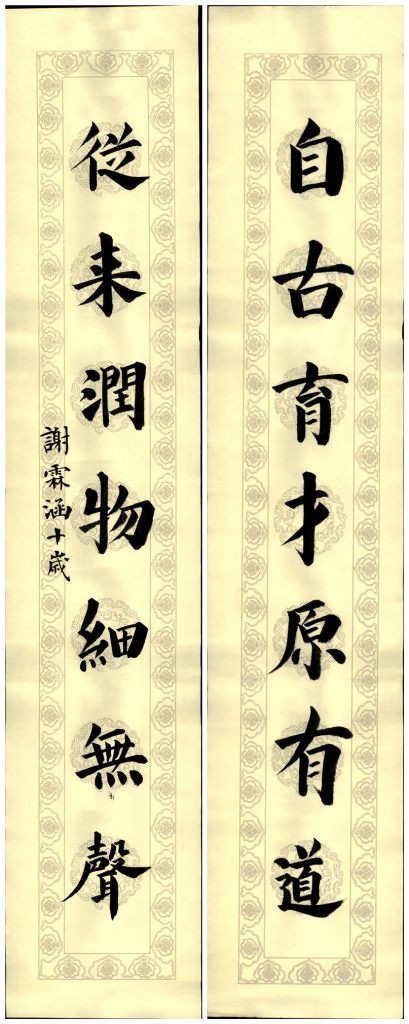 自古育才原有道
從来潤物細無聲
謝霖涵十歲